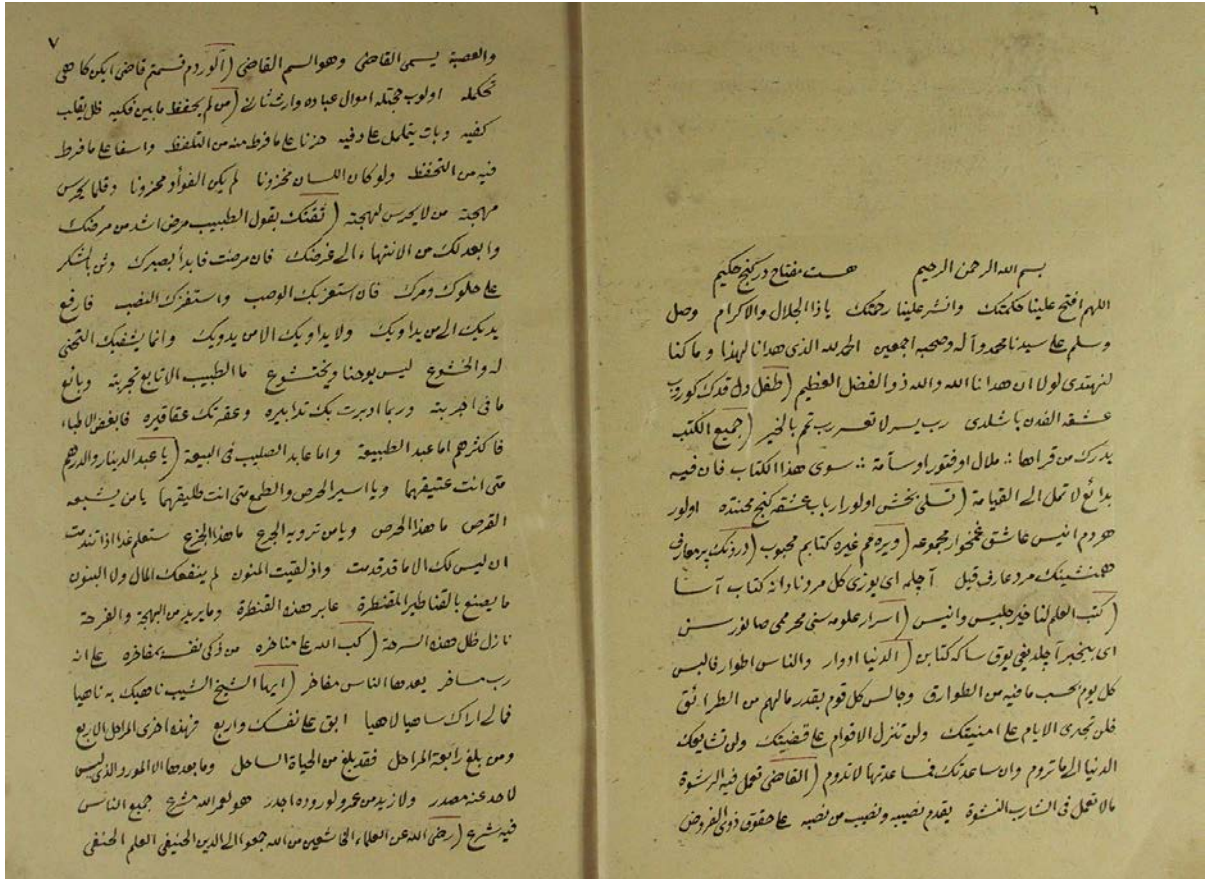 ٦
بسم الله الرحمن الرحيم هست مفتاح در كنج حكيم
اللهم افتح علينا حكمتك وانشر علينا رحمتك ياذا الجلال والاكرام وصل
وسلم على سيدنا محمد وآله وصحبه اجمعين الحمد لله الذى هدانا لهذا وما كنا
لنهتدى لولا ان هدانا الله والله ذو الفضل العظيم (طفل دل قدك كورب
عشقه الفدن باشلدى رب يسر لا تعسر رب تمم بالخير (جميع الكتب
يدرك من قراها ∴ ملال او فتور او سآمة ∴ سوى هذا الكتاب فان فيه
بدائع لا تمل الى القيامة (تسلى بخش اولور ارباب عشقه كنج محنتده اولور
هر دم انيس عاشق غمخوار مجموعه (ويرمم غيره كتابم محبوب (درونك پر معارف
همنشينك مرد عارف قيل آچلمه اى يوزى كل مرد نادانه كتاب آسا
(كتب العلم لنا خير جليس وانيس (اسرار علومه سنى محرمى صانورسن
اى بيخبر آچلديغى يوق ساكه كتابن (الدنيا ادوار والناس اطوار فالبس
كل يوم بحسب ما فيه من الطوارق وجالس كل قوم بقدر ما لهم من الطرائق
فلن تجرى الايام على امنيتك ولن تنزل الاقوام على قضيتك ولن تشايعك
الدنيا الى ما تروم وان ساعدتك فمساعدتها لا تدوم (القاضى تعمل فيه الرشوة
مالا تعمل فى الشارب النشوة يقدم نصيبه ونصيب من نصبه على حقوق ذوى الفروض
٧
والعصبة يسمى القاضى وهو السم القاضى (آلوردم قسمتم قاضى ايكن كاهى
محكمه اولوب مجتله اموال عباده وارث ثانى (من لم يحفظ ما بين فكيه ظل يقلب
كفيه وبات يتململ على دفيه حزنا على ما فرط منه من التلفظ واسفا على ما فرط
فيه من التحفظ ولو كان اللسان مخزونا لم يكن الفوأد محزونا وقلما يحرس
مهجته من لا يحرس لهجته (ثقتك بقول الطبيب مرض اشد من مرضك
وابعد لك من الانتهاء الى غرضك فان مرضت فابدأ بصبرك وثن بالشكر
على حلوك ومرك فان استعزبك الوصب واستفزك النصب فارفع
يديك الى من يداويك ولا يداويك الا من يدويك وانما يشفيك التحنى
له والخشوع ليس يوحنا وبختشوع ما الطبيب الا تابع تجربته وبائع
ما فى اجربته وربما ادبرت بك تدابيره وعقرتك عقاقيره فابغض الاطباء
فاكثرهم اما عبد الطبيعة واما عابد الصليب فى البيعة (يا عبد الدينار والدرهم
متى انت عتيقهما ويا اسير الحرص والطمع متى انت طليقهما يا من يشبعه
القرص ما هذا الحرص ويا من ترويه الجرع ما هذا الجزع ستعلم غدا اذا تندمت
ان ليس لك الا ما قد قدمت واذ لقيت المنون لم ينفعك المال ولا البنون
ما يصنع بالقناطير المقنطرة عابر هذه القنطرة وما يريد من البهجة والفرحة
نازل ظل هذه السرحة (كب الله على مناخره من زكى نفسه بمفاخره على انه
رب مساخر يعدها الناس مفاخر (ايها الشيخ الشيب ناهيك به ناهيا
فما لى اراك ساهيا لاهيا ابق على نفسك واربع فهذه اخرى المراحل الاربع
ومن بلغ رابعة المراحل فقد بلغ من الحياة الساحل وما بعدها الا المورد الذى ليس
لاحد عنه مصدر ولا زيد من عمرو لوروده اجدر هو لعمر الله مشرع جميع الناس
فيه شرع (رضى الله عن العلماء الخاشعين من الله جمعوا الى الدين الحنيفى العلم الحنفى